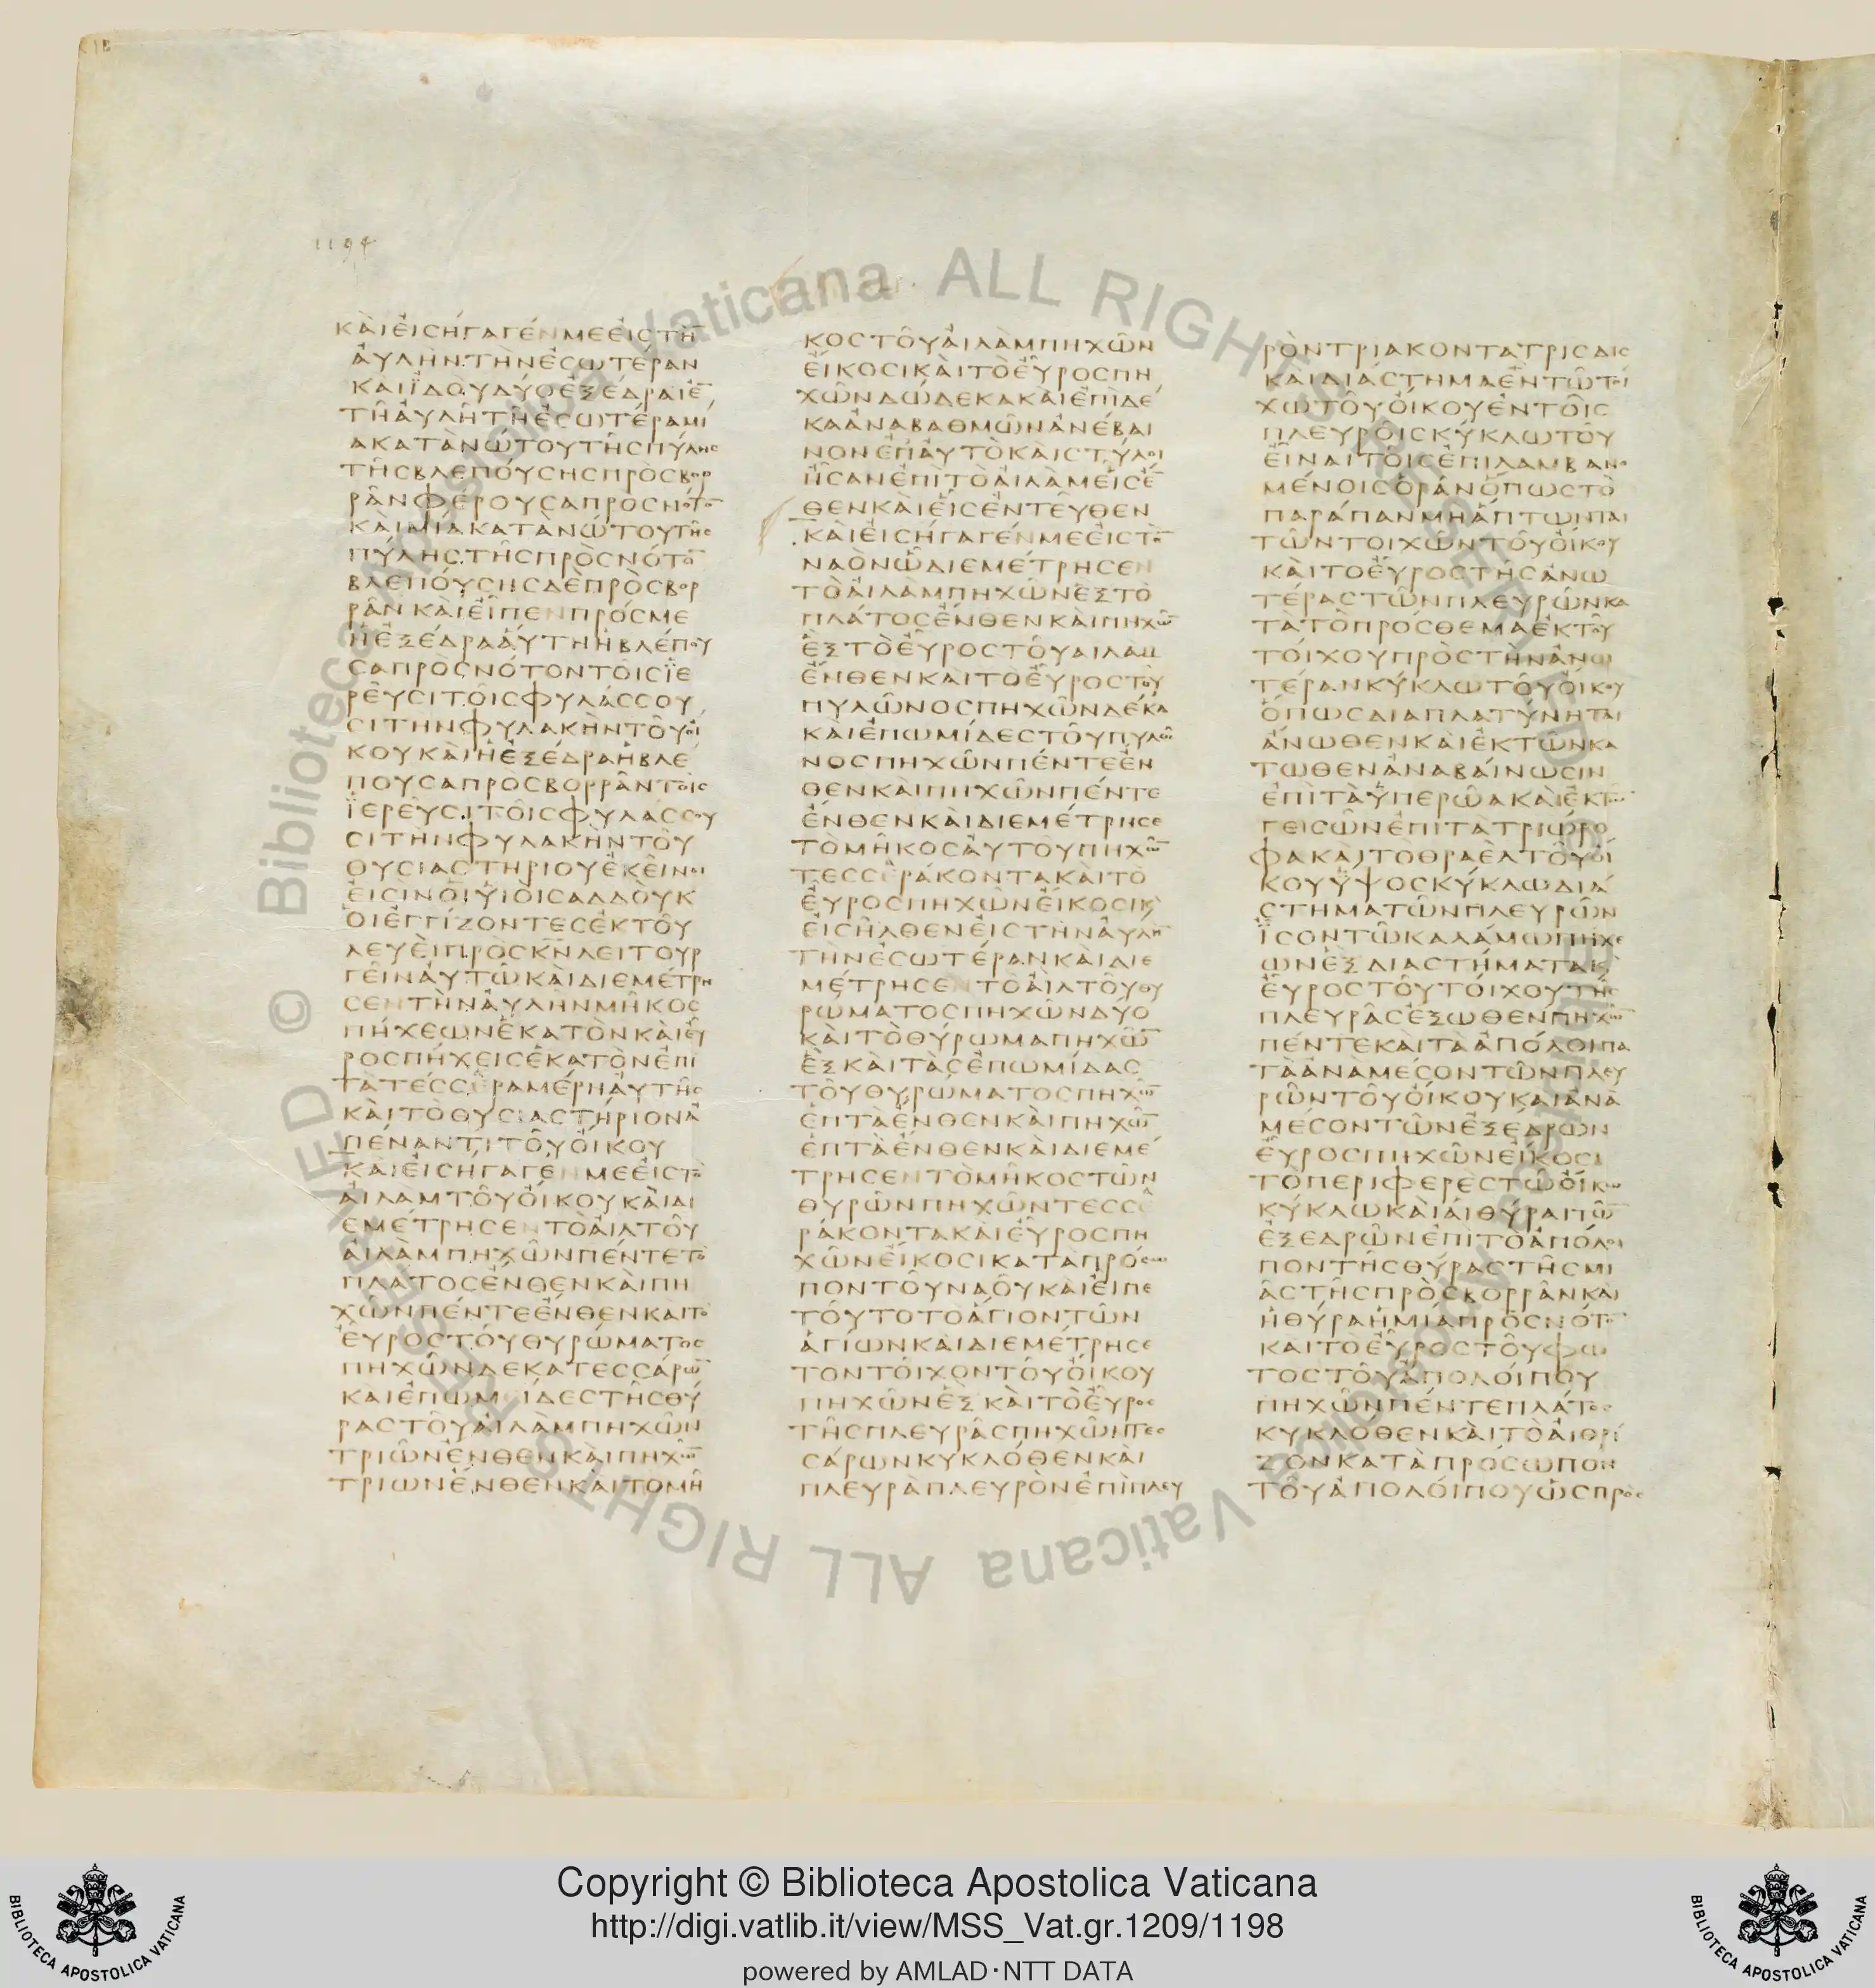 1194
ΚΑΙΕΙCΗΓΑΓΕΝΜΕΕΙCΤΗ̅
ΑΥΛΗΝΤΗΝΕCΩΤΕΡΑΝ
ΚΑΙΪΔΟΥΔΥΟΕΞΕΔΡΑΙΕ̅
ΤΗΑΥΛΗΤΗΕCΩΤΕΡΑΜΙ
ΑΚΑΤΑΝΩΤΟΥΤΗCΠΥΛΗC
ΤΗCΒΛΕΠΟΥCΗCΠΡΟCΒΟΡ
ΡΑΝΦΕΡΟΥCΑΠΡΟCΝΟΤΟ̅
ΚΑΙΜΙΑΚΑΤΑΝΩΤΟΥΤΗC
ΠΥΛΗCΤΗCΠΡΟCΝΟΤΟ̅
ΒΛΕΠΟΥCΗCΔΕΠΡΟCΒΟΡ
ΡΑΝΚΑΙΕΙΠΕΝΠΡΟCΜΕ
ΗΕΞΕΔΡΑΑΥΤΗΗΒΛΕΠΟΥ
CΑΠΡΟCΝΟΤΟΝΤΟΙCΪΕ
ΡΕΥCΙΤΟΙCΦΥΛΑCCΟΥ
CΙΤΗΝΦΥΛΑΚΗΝΤΟΥΟΙ
ΚΟΥΚΑΙΗΕΞΕΔΡΑΗΒΛΕ
ΠΟΥCΑΠΡΟCΒΟΡΡΑΝΤΟΙC
ΪΕΡΕΥCΙΤΟΙCΦΥΛΑCCΟΥ
CΙΤΗΝΦΥΛΑΚΗΝΤΟΥ
ΘΥCΙΑCΤΗΡΙΟΥΕΚΕΙΝΟΙ
ΕΙCΙΝΟΙΫΙΟΙCΑΔΔΟΥΚ
ΟΙΕΓΓΙΖΟΝΤΕCΕΚΤΟΥ
ΛΕΥΕΙΠΡΟCΚ̅Ν̅ΛΕΙΤΟΥΡ
ΓΕΙΝΑΥΤΩΚΑΙΔΙΕΜΕΤΡΗ
CΕΝΤΗΝΑΥΛΗΝΜΗΚΟC
ΠΗΧΕΩΝΕΚΑΤΟΝΚΑΙΕΥ
ΡΟCΠΗΧΕΙCΕΚΑΤΟΝΕΠΙ
ΤΑΤΕCCΕΡΑΜΕΡΗΑΥΤΗC
ΚΑΙΤΟΘΥCΙΑCΤΗΡΙΟΝΑ
ΠΕΝΑΝΤΙΤΟΥΟΙΚΟΥ
ΚΑΙΕΙCΗΓΑΓΕΝΜΕΕΙCΤΟ
ΑΙΛΑΜΤΟΥΟΙΚΟΥΚΑΙΔΙ
ΕΜΕΤΡΗCΕΝΤΟΑΙΛΤΟΥ
ΑΙΛΑΜΠΗΧΩΝΠΕΝΤΕΤΟ
ΠΛΑΤΟCΕΝΘΕΝΚΑΙΠΗ
ΧΩΝΠΕΝΤΕΕΝΘΕΝΚΑΙΤΟ
ΕΥΡΟCΤΟΥΘΥΡΩΜΑΤΟC
ΠΗΧΩΝΔΕΚΑΤΕCCΑΡΩ̅
ΚΑΙΕΠΩΜΕΙΔΕCΤΗCΘΥ
ΡΑCΤΟΥΑΙΛΑΜΠΗΧΩΝ
ΤΡΙΩΝΕΝΘΕΝΚΑΙΠΗΧΩ̅
ΤΡΙΩΝΕΝΘΕΝΚΑΙΤΟΜΗ
ΚΟCΤΟΥΑΙΛΑΜΠΗΧΩΝ
ΕΙΚΟCΙΚΑΙΤΟΕΥΡΟCΠΗ
ΧΩΝΔΩΔΕΚΑΚΑΙΕΠΙΔΕ
ΚΑΑΝΑΒΑΘΜΩΝΑΝΕΒΑΙ
ΝΟΝΕΠΑΥΤΟΚΑΙCΤΥΛΟΙ
ΗCΑΝΕΠΙΤΟΑΙΛΑΜΕΙCΕ̅
ΘΕΝΚΑΙΕΙCΕΝΤΕΥΘΕΝ
ΚΑΙΕΙCΗΓΑΓΕΝΜΕΕΙCΤΟ̅
ΝΑΟΝΩΔΙΕΜΕΤΡΗCΕΝ
ΤΟΑΙΛΑΜΠΗΧΩΝΕΞΤΟ
ΠΛΑΤΟCΕΝΘΕΝΚΑΙΠΗΧΩ̅
ΕΞΤΟΕΥΡΟCΤΟΥΑΙΛΑΜ
ΕΝΘΕΝΚΑΙΤΟΕΥΡΟCΤΟΥ
ΠΥΛΩΝΟCΠΗΧΩΝΔΕΚΑ
ΚΑΙΕΠΩΜΙΔΕCΤΟΥΠΥΛΩ
ΝΟCΠΗΧΩΝΠΕΝΤΕΕΝ
ΘΕΝΚΑΙΠΗΧΩΝΠΕΝΤΕ
ΕΝΘΕΝΚΑΙΔΙΕΜΕΤΡΗCΕ
ΤΟΜΗΚΟCΑΥΤΟΥΠΗΧΩ̅
ΤΕCCΕΡΑΚΟΝΤΑΚΑΙΤΟ
ΕΥΡΟCΠΗΧΩΝΕΙΚΟCΙΚ
ΕΙCΗΛΘΕΝΕΙCΤΗΝΑΥΛΗ̅
ΤΗΝΕCΩΤΕΡΑΝΚΑΙΔΙΕ
ΜΕΤΡΗCΕΝΤΟΑΙΛΤΟΥΘΥ
ΡΩΜΑΤΟCΠΗΧΩΝΔΥΟ
ΚΑΙΤΟΘΥΡΩΜΑΠΗΧΩ̅
ΕΞΚΑΙΤΑCΕΠΩΜΙΔΑC
ΤΟΥΘΥΡΩΜΑΤΟCΠΗΧΩ̅
ΕΠΤΑΕΝΘΕΝΚΑΙΠΗΧΩ̅
ΕΠΤΑΕΝΘΕΝΚΑΙΔΙΕΜΕ
ΤΡΗCΕΝΤΟΜΗΚΟCΤΩΝ
ΘΥΡΩΝΠΗΧΩΝΤΕCCΕ
ΡΑΚΟΝΤΑΚΑΙΕΥΡΟCΠΗ
ΧΩΝΕΙΚΟCΙΚΑΤΑΠΡΟCΩ
ΠΟΝΤΟΥΝΑΟΥΚΑΙΕΙΠΕ
ΤΟΥΤΟΤΟΑΓΙΟΝΤΩΝ
ΑΓΙΩΝΚΑΙΔΙΕΜΕΤΡΗCΕ
ΤΟΝΤΟΙΧΟΝΤΟΥΟΙΚΟΥ
ΠΗΧΩΝΕΞΚΑΙΤΟΕΥΡΟC
ΤΗCΠΛΕΥΡΑCΠΗΧΩΝΤΕC
CΑΡΩΝΚΥΚΛΟΘΕΝΚΑΙ
ΠΛΕΥΡΑΠΛΕΥΡΟΝΕΠΙΠΛΕΥ
ΡΟΝΤΡΙΑΚΟΝΤΑΤΡΙCΔΙC
ΚΑΙΔΙΑCΤΗΜΑΕΝΤΩΤΟΙ
ΧΩΤΟΥΟΙΚΟΥΕΝΤΟΙC
ΠΛΕΥΡΟΙCΚΥΚΛΩΤΟΥ
ΕΙΝΑΙΤΟΙCΕΠΙΛΑΜΒΑΝΟ
ΜΕΝΟΙCΟΡΑΝΟΠΩCΤΟ
ΠΑΡΑΠΑΝΜΗΑΠΤΩΝΤΑΙ
ΤΩΝΤΟΙΧΩΝΤΟΥΟΙΚΟΥ
ΚΑΙΤΟΕΥΡΟCΤΗCΑΝΩ
ΤΕΡΑCΤΩΝΠΛΕΥΡΩΝΚΑ
ΤΑΤΟΠΡΟCΘΕΜΑΕΚΤΟΥ
ΤΟΙΧΟΥΠΡΟCΤΗΝΑΝΩ
ΤΕΡΑΝΚΥΚΛΩΤΟΥΟΙΚΟΥ
ΟΠΩCΔΙΑΠΛΑΤΥΝΗΤΑΙ
ΑΝΩΘΕΝΚΑΙΕΚΤΩΝΚΑ
ΤΩΘΕΝΑΝΑΒΑΙΝΩCΙΝ
ΕΠΙΤΑΫΠΕΡΩΑΚΑΙΕΚΤΩ̅
ΓΕΙCΩΝΕΠΙΤΑΤΡΙΩΡΟ
ΦΑΚΑΙΤΟΘΡΑΕΛΤΟΥΟΙ
ΚΟΥΫΨΟCΚΥΚΛΩΔΙΑ
CΤΗΜΑΤΩΝΠΛΕΥΡΩΝ
ΪCΟΝΤΩΚΑΛΑΜΩΠΗΧΕ
ΩΝΕΞΔΙΑCΤΗΜΑΤΑΚ
ΕΥΡΟCΤΟΥΤΟΙΧΟΥΤΗC
ΠΛΕΥΡΑCΕΞΩΘΕΝΠΗΧΩ̅
ΠΕΝΤΕΚΑΙΤΑΑΠΟΛΟΙΠΑ
ΤΑΑΝΑΜΕCΟΝΤΩΝΠΛΕΥ
ΡΩΝΤΟΥΟΙΚΟΥΚΑΙΑΝΑ
ΜΕCΟΝΤΩΝΕΞΕΔΡΩΝ
ΕΥΡΟCΠΗΧΩΝΕΙΚΟCΙ
ΤΟΠΕΡΙΦΕΡΕCΤΩΟΙΚΩ
ΚΥΚΛΩΚΑΙΑΙΘΥΡΑΙΤΩ̅
ΕΞΕΔΡΩΝΕΠΙΤΟΑΠΟΛΟΙ
ΠΟΝΤΗCΘΥΡΑCΤΗCΜΙ
ΑCΤΗCΠΡΟCΒΟΡΡΑΝΚΑΙ
ΗΘΥΡΑΗΜΙΑΠΡΟCΝΟΤΟ̅
ΚΑΙΤΟΕΥΡΟCΤΟΥΦΩ
ΤΟCΤΟΥΑΠΟΛΟΙΠΟΥ
ΠΗΧΩΝΠΕΝΤΕΠΛΑΤΟC
ΚΥΚΛΟΘΕΝΚΑΙΤΟΑΙΘΡΙ
ΖΟΝΚΑΤΑΠΡΟCΩΠΟΝ
ΤΟΥΑΠΟΛΟΙΠΟΥΩCΠΡΟC
© Biblioteca Vaticana ALL RIGHTS RESERVED
Copyright © Biblioteca Apostolica Vaticana
http://digi.vatlib.it/view/MSS_Vat.gr.1209/1198
powered by AMLAD·NTT DATA
BIBLIOTECA APOSTOLICA VATICANA
BIBLIOTECA APOSTOLICA VATICANA